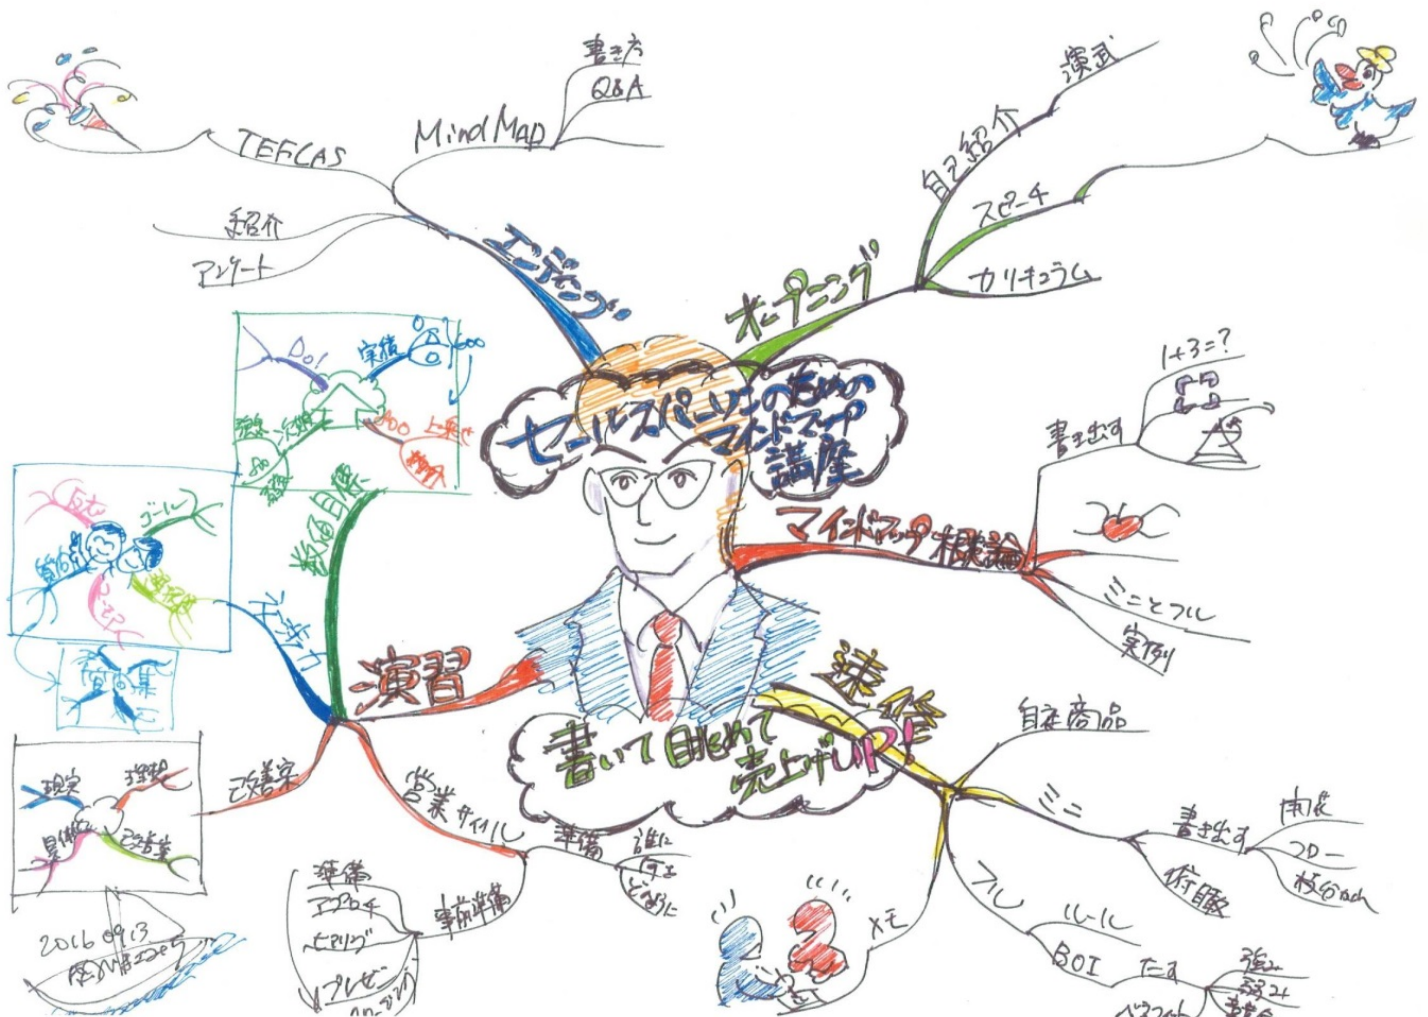 セールスパーソンのための
マインドマップ
講座
書いて眺めて
売上げUP!
オープニング
自己紹介
演武
スピーチ
カリキュラム
マインドマップ概論
書き出す
1+3=?
ミニとフル
実例
速修
自社商品
ミニ
書き出す
フロー
俯瞰
フル
ルール
BOI
たす
強み
弱み
メモ
演習
営業サイクル
準備
誰に
何を
どのように
事前準備
準備
アプローチ
ヒアリング
プレゼン
クロージング
改善案
現実
理想
改善案
ゴール
数値目標
Do!
実績
エンディング
MindMap
書き方
Q&A
TEFCAS
紹介
アンケート
2016 09.13